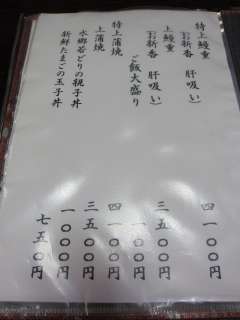 特上鰻重　四一〇〇円
(お新香　肝吸い)
上鰻重　三五〇〇円
(お新香　肝吸い)
ご飯大盛り　一〇〇円
特上蒲焼　四一〇〇円
上蒲焼　三五〇〇円
水郷若どりの親子丼　一〇〇〇円
新鮮たまごの玉子丼　七五〇円